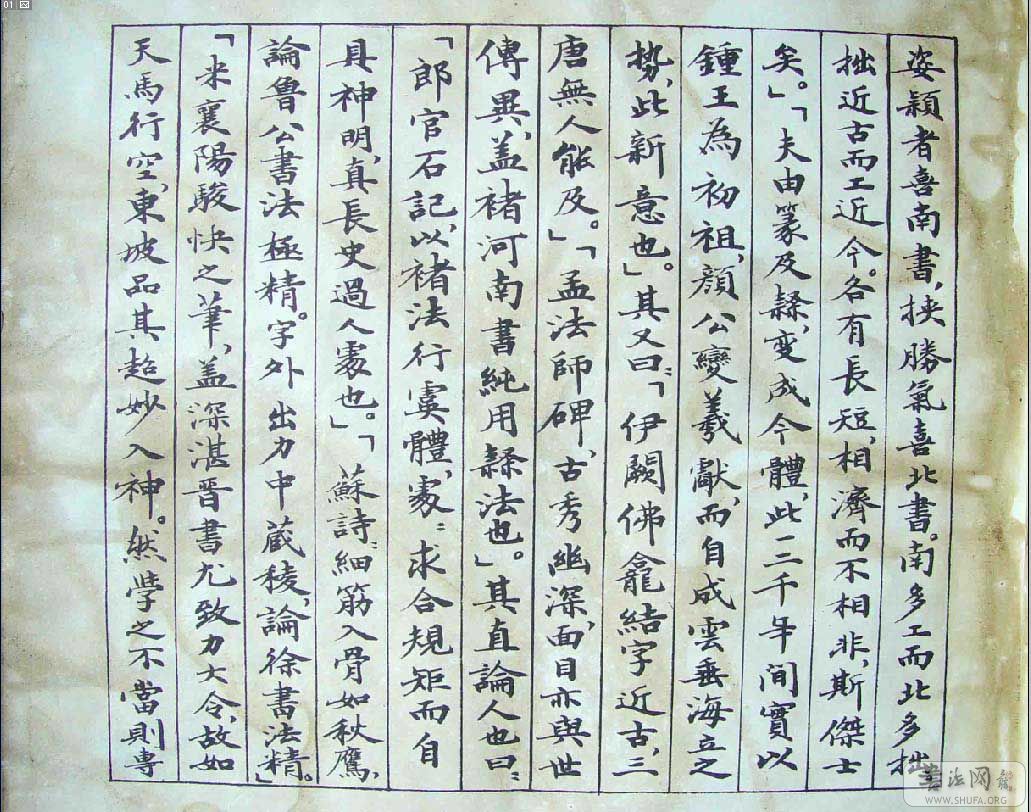 姿穎者喜南書，挾勝氣喜北書。南多工而北多拙，
拙近古而工近今。各有長短，相濟而不相非，斯傑士
矣。」「夫由篆及隸，变成今體，此二千年間實以
鍾王為初祖，顏公變羲獻，而自成雲垂海立之
势，此新意也」。其又曰：「伊闕佛龕結字近古，三
唐無人能及。」「孟法師碑，古秀幽深，面目亦與世
傳異，盖褚河南書純用隸法也。」其直論人也曰：
「郎官石記，以褚法行虞體，處：求合規矩而自
具神明，真長史過人處也。」「蘇詩：細筋入骨如秋鷹，
論魯公書法極精。字外出力中蔵稜，論徐書法精。」
「米襄陽駿快之筆，盖深湛晋書尤致力大令，故如
天馬行空，東坡品其超妙入神。然學之不當則專
書法网
WWW.SHUFA.ORG
01